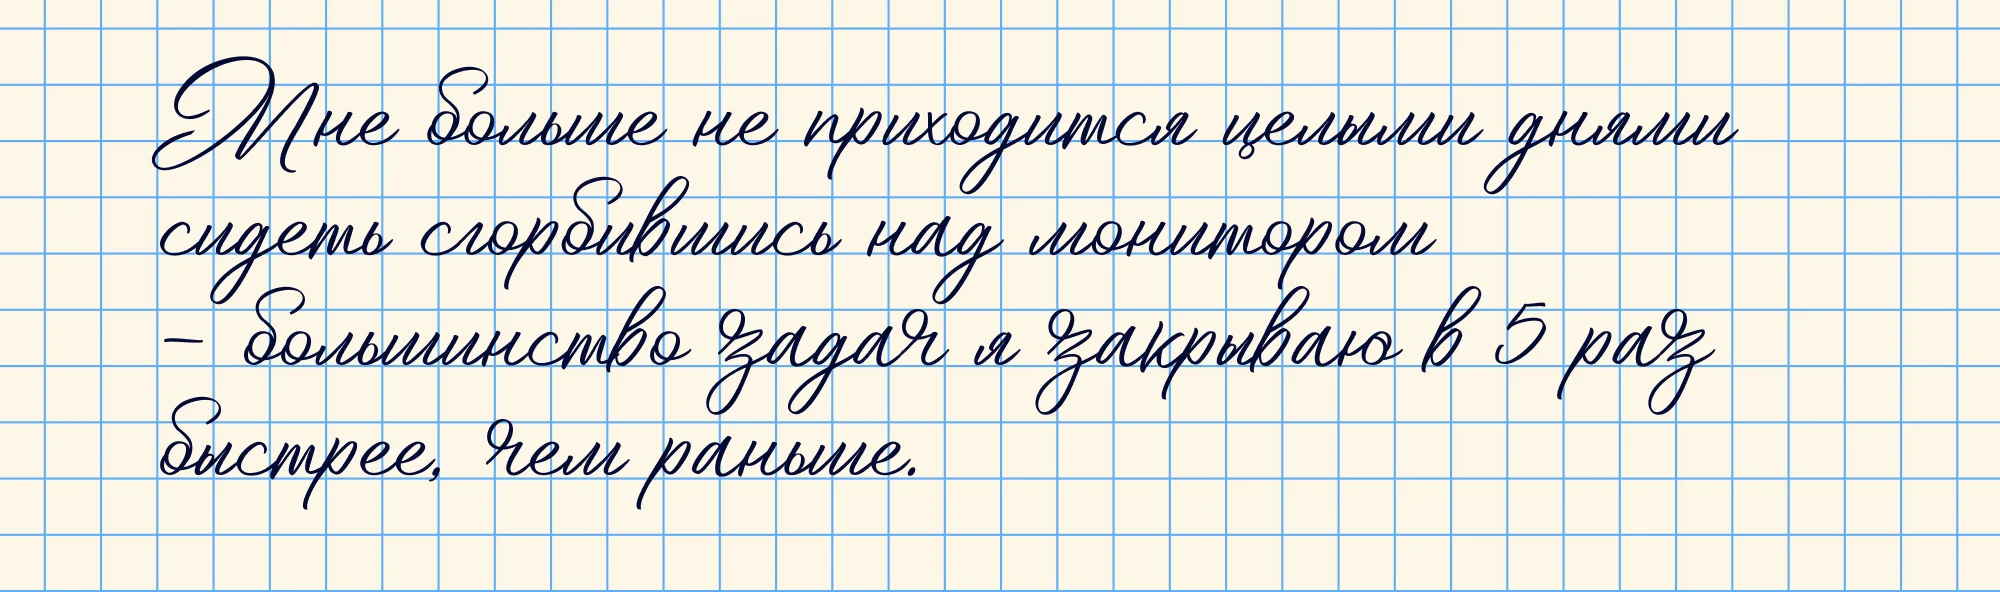 Мне больше не приходится целыми днями
сидеть сгорбившись над монитором
– большинство задач я закрываю в 5 раз
быстрее, чем раньше.